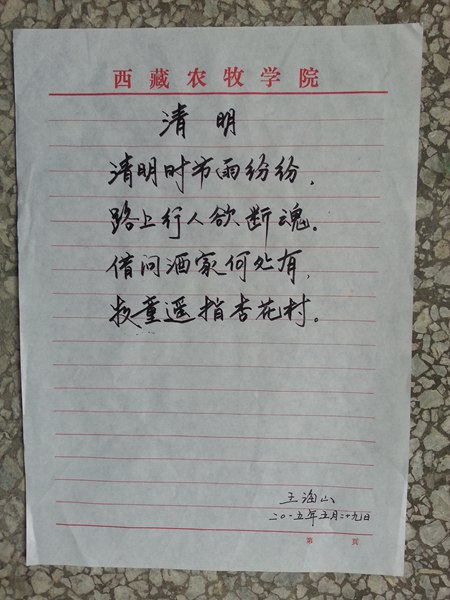 西藏农牧学院
清明
清明时节雨纷纷，
路上行人欲断魂。
借问酒家何处有，
牧童遥指杏花村。
王海山
二〇一五年五月二十九日
第 页